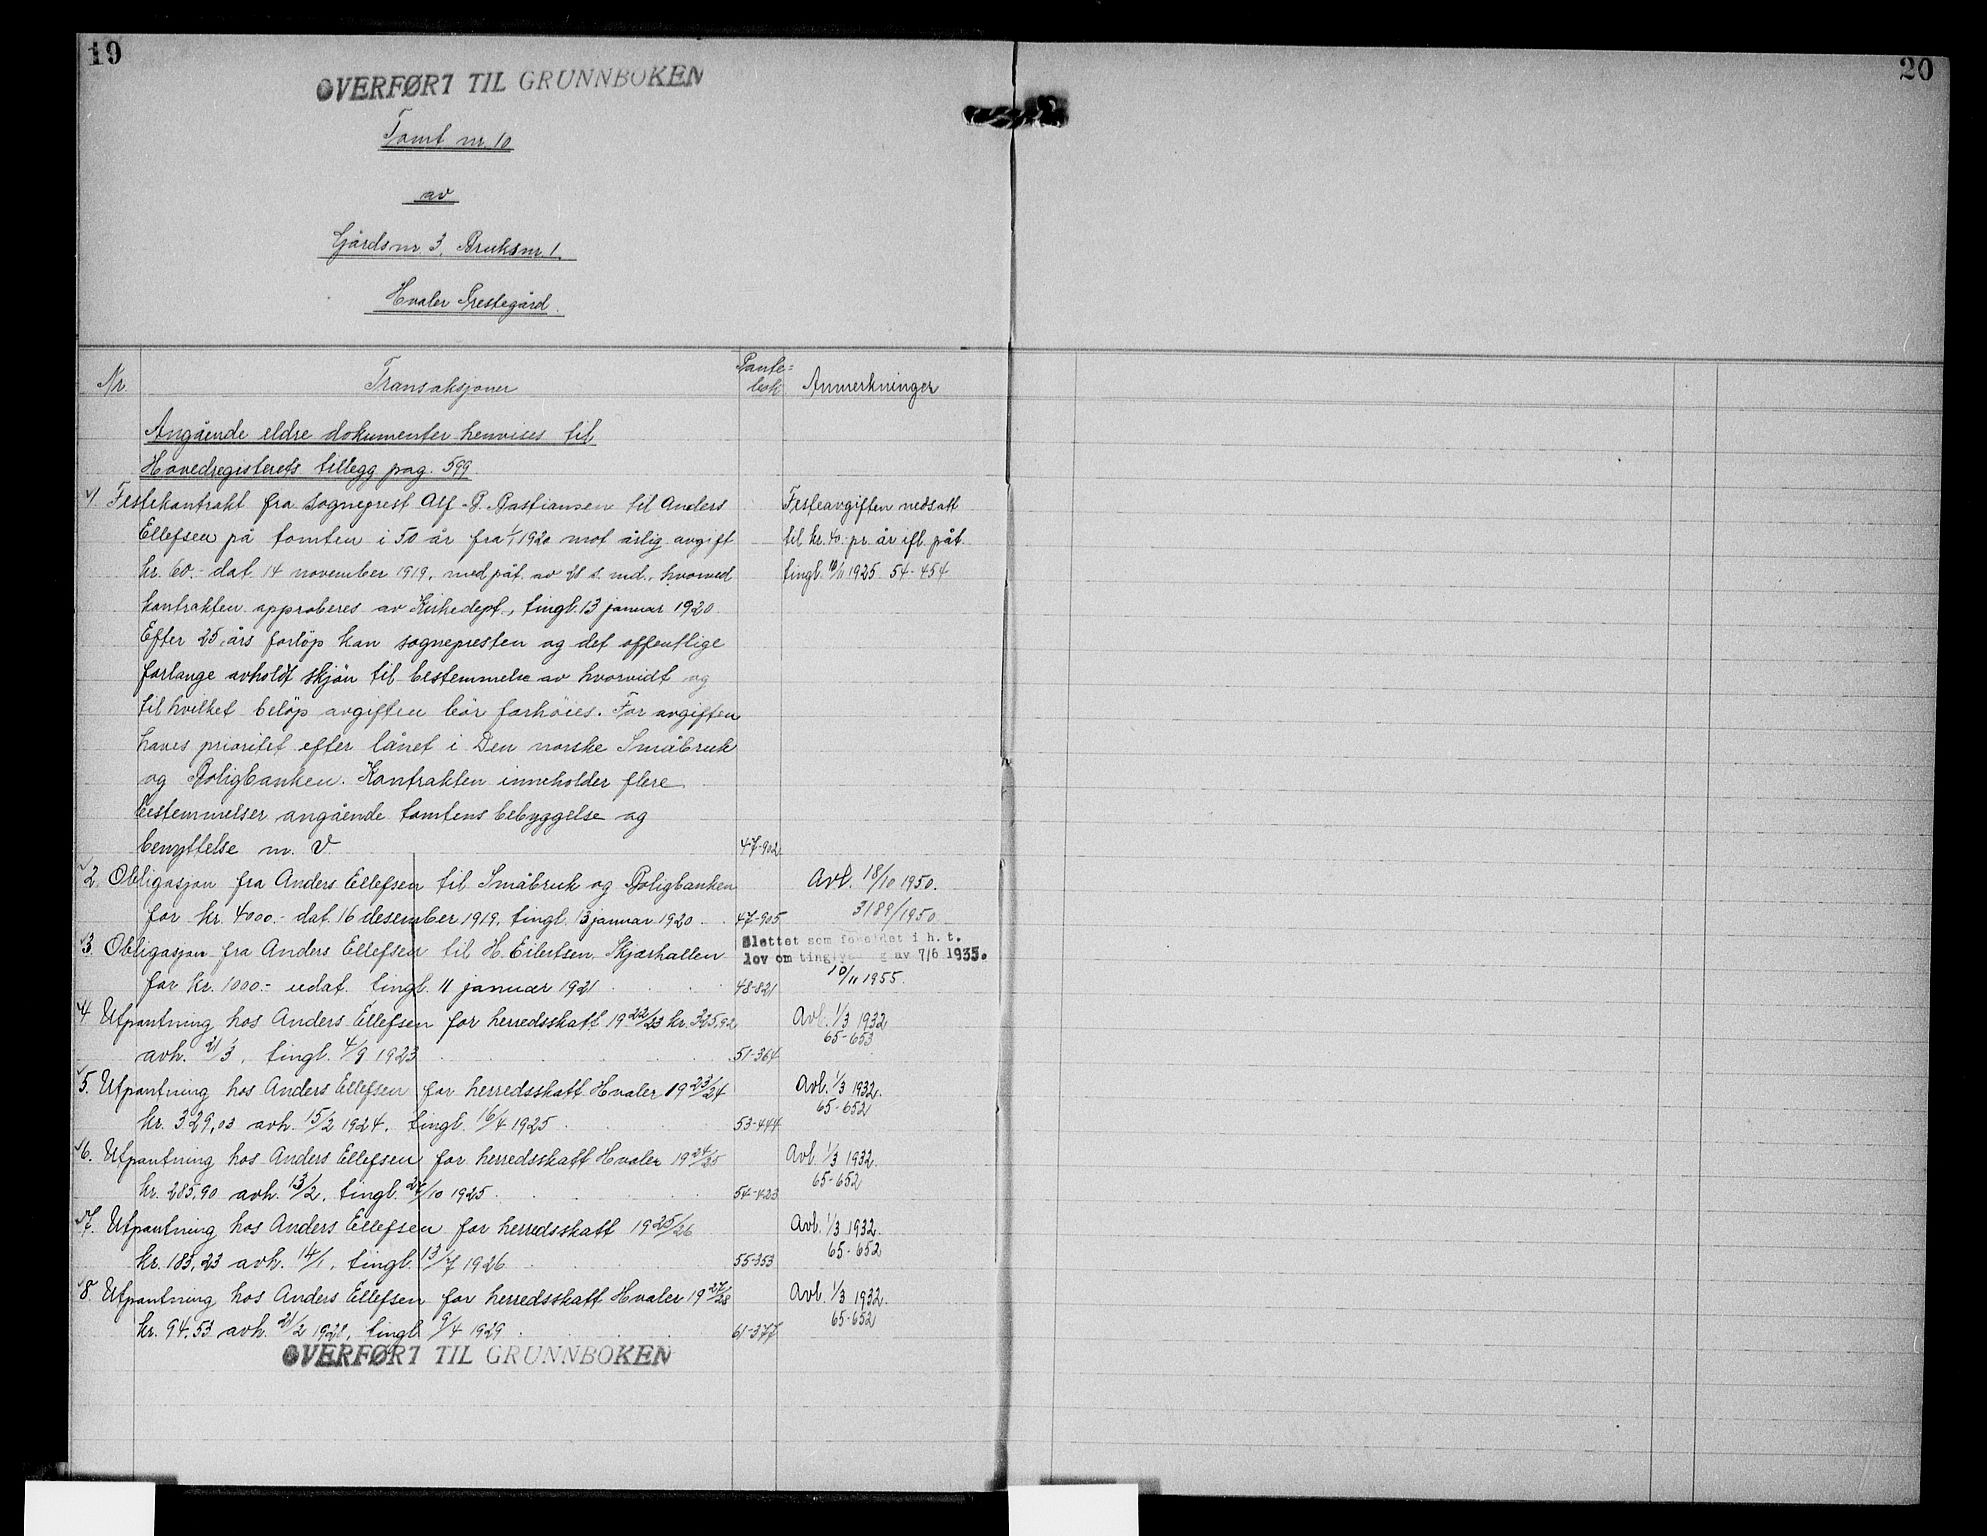 19
20
OVERFØRT TIL GRUNNBOKEN
Tomt nr. 10
av
Gårdsnr. 3, Bruksnr. 1.
Hvaler Prestegård.
Nr. Transaksjoner Pante-
bok Anmerkninger
Angående eldre dokumenter henvises til
Hovedregisterets tillegg pag. 599.
1 Festekontrakt fra sogneprest Alf. B. Bastiansen til Anders
Ellefsen på tomten i 50 år fra 1/1 1920 mot årlig avgift
kr. 60.- dat. 14 november 1919, med påt. av s. md., hvorved
kontrakten approberes av Kirkedept., tingl. 13 januar 1920.
Efter 25 års forløp kan sognepresten og det offentlige
forlange avholdt skjön til bestemmelse av hvorvidt og
til hvilket beløp avgiften bör forhöies. For avgiften
haves prioritet efter lånet i Den norske Småbruk
og Boligbanken. Kontrakten inneholder flere
bestemmelser angående tomtens bebyggelse og
benyttelse m. v. 47-902
Festeavgiften nedsatt
til kr. 40.- pr. år ifl. påt.
tingl. 10/11 1925 54-454
2. Obligasjon fra Anders Ellefsen til Småbruk og Boligbanken
for kr. 4000.- dat. 16 desember 1919, tingl. 13 januar 1920. 47-905
Avl. 18/10 1950.
3189/1950
3. Obligasjon fra Anders Ellefsen til H. Eilertsen, Skjærhallen
for kr. 1000.- udat. tingl. 11 januar 1921 48-821
Slettet som foreldet i h. t.
lov om tinglysning av 7/6 1935.
10/11 1955.
4 Utpantning hos Anders Ellefsen for herredsskatt 1922/23 kr. 325,92
avh. 21/3, tingl. 4/9 1923 51-364
Avl. 1/3 1932
65-653
5. Utpantning hos Anders Ellefsen for herredsskatt Hvaler 1923/24
kr. 329,03 avh. 15/2 1924, tingl. 16/4 1925 53-444
Avl. 1/3 1932.
65-652
6. Utpantning hos Anders Ellefsen for herredsskatt Hvaler 1924/25
kr. 285,90 avh. 13/2, tingl. /10 1925. 54-423
Avl. 1/3 1932.
65-652
7. Utpantning hos Anders Ellefsen for herredsskatt 1925/26
kr. 183,23 avh. 14/1, tingl. 13/7 1926 55-353
Avl. 1/3 1932.
65-652
8. Utpantning hos Anders Ellefsen for herredsskatt Hvaler 1927/28
kr. 94,53 avh. 21/2 1928, tingl. 9/4 1929 61-377
Avl. 1/3 1932.
65-652
OVERFØRT TIL GRUNNBOKEN